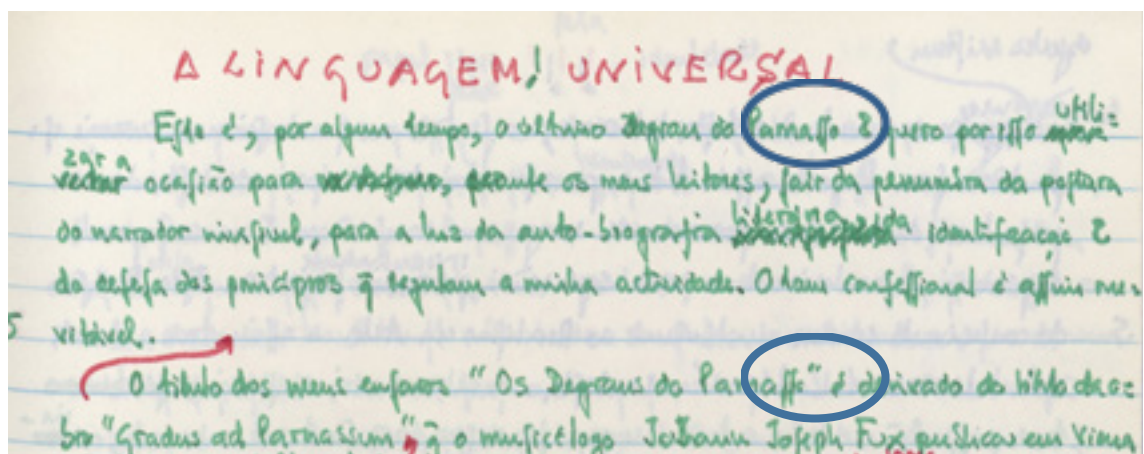 A LINGUAGEM! UNIVERSAL
Eſte é, por algum tempo, o último Degrau do Parnaſſo & quero por iſſo utili=
zar a ocaſião para perante os meus leitores, ſair da penumbra da poſtura
do narrador inviſível, para a luz da auto-biografia literária da identificação &
da defeſa dos princípios q̃ regulam a minha actividade. O tom confeſſional é aſſim ine-
vitável.
O título dos meus enſaios "Os Degraus do Parnaſſo" é derivado do título da o=
bra "Gradus ad Parnassum", q̃ o muſicólogo Johann Joſeph Fux publicou em Viena